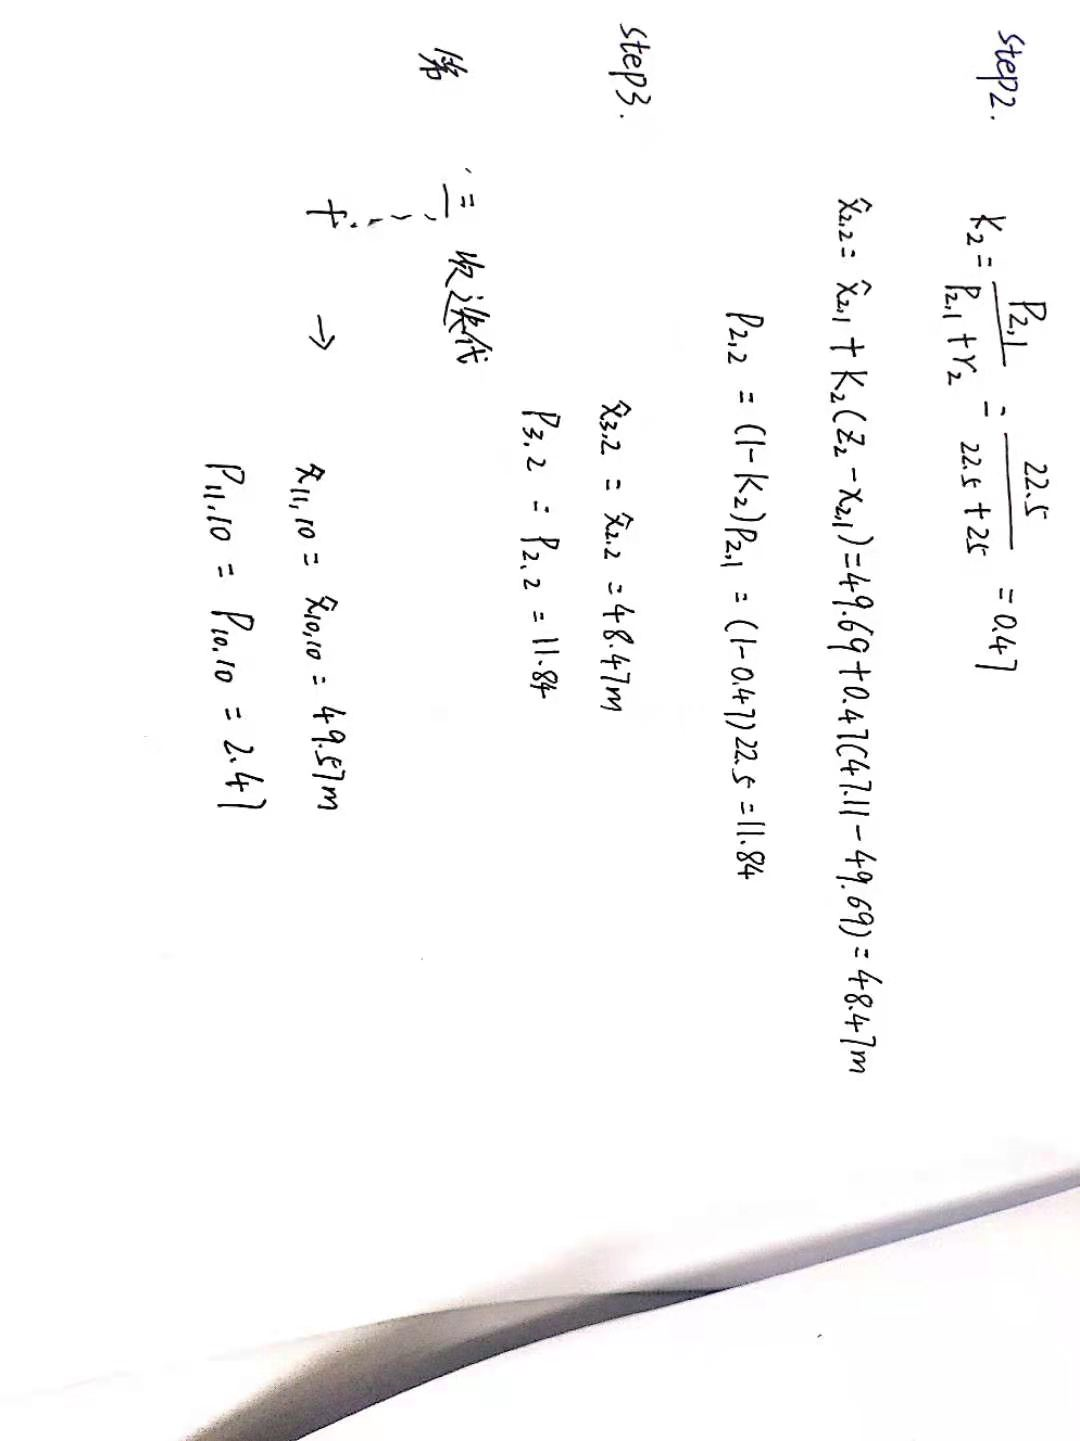 step2. K₂ = P₂,₁ / (P₂,₁ + r₂) = 22.5 / (22.5 + 25) = 0.47
x̂₂,₂ = x̂₂,₁ + K₂(Z₂ - x₂,₁) = 49.69 + 0.47(47.11 - 49.69) = 48.47m
P₂,₂ = (1 - K₂)P₂,₁ = (1 - 0.47)22.5 = 11.84
step3. x̂₃,₂ = x̂₂,₂ = 48.47m
P₃,₂ = P₂,₂ = 11.84
第 三 次迭代
十 → x̂₁₁,₁₀ = x̂₁₀,₁₀ = 49.57m
P₁₁,₁₀ = P₁₀,₁₀ = 2.47